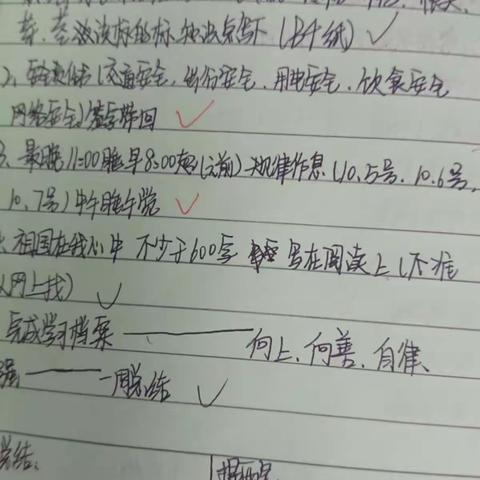 茎、茎该标的标，知识点写下（B4纸）
2、安全责任书（交通安全，出行安全，用电安全、饮食安全
网络安全）签字带回
3、最晚11:00睡早8:00起（之前）规律作息（10.5号、10.6号，
10.7号）中午睡午觉
祖国在我心中 不少于600字 写在阅读上（不准
从网上找）
完成学习档案 —— 向上、向善、自律、
强 —— 一周总结
总结：